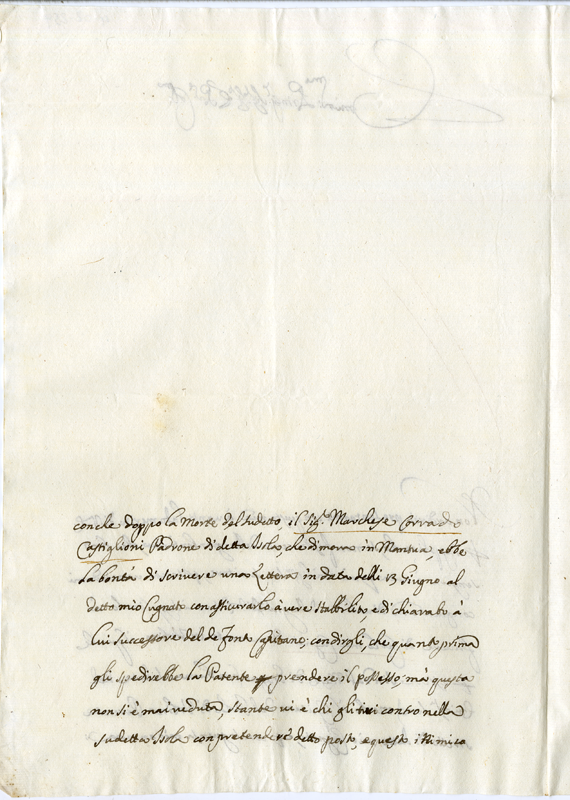 conche doppo la Morte del sudetto, il Sig.r Marchese Corrado
Castiglioni Padrone di detta Isola, che dimora in Mantua, ebbe
la bontà di scrivere una Lettera in data delli 13 Giugno al
detto mio Cugnato con assicurarlo àvere stabbilito, e dichiarato à
lui successore del defonto Capitano, con dirgli, che quanto prima
gli spedirebbe la Patente p prendere il possesso, mà questa
non si è mai veduta, stante ui è chi gli tiri contro nella
sudetta Isola con pretendere detto posto, e questo inimico